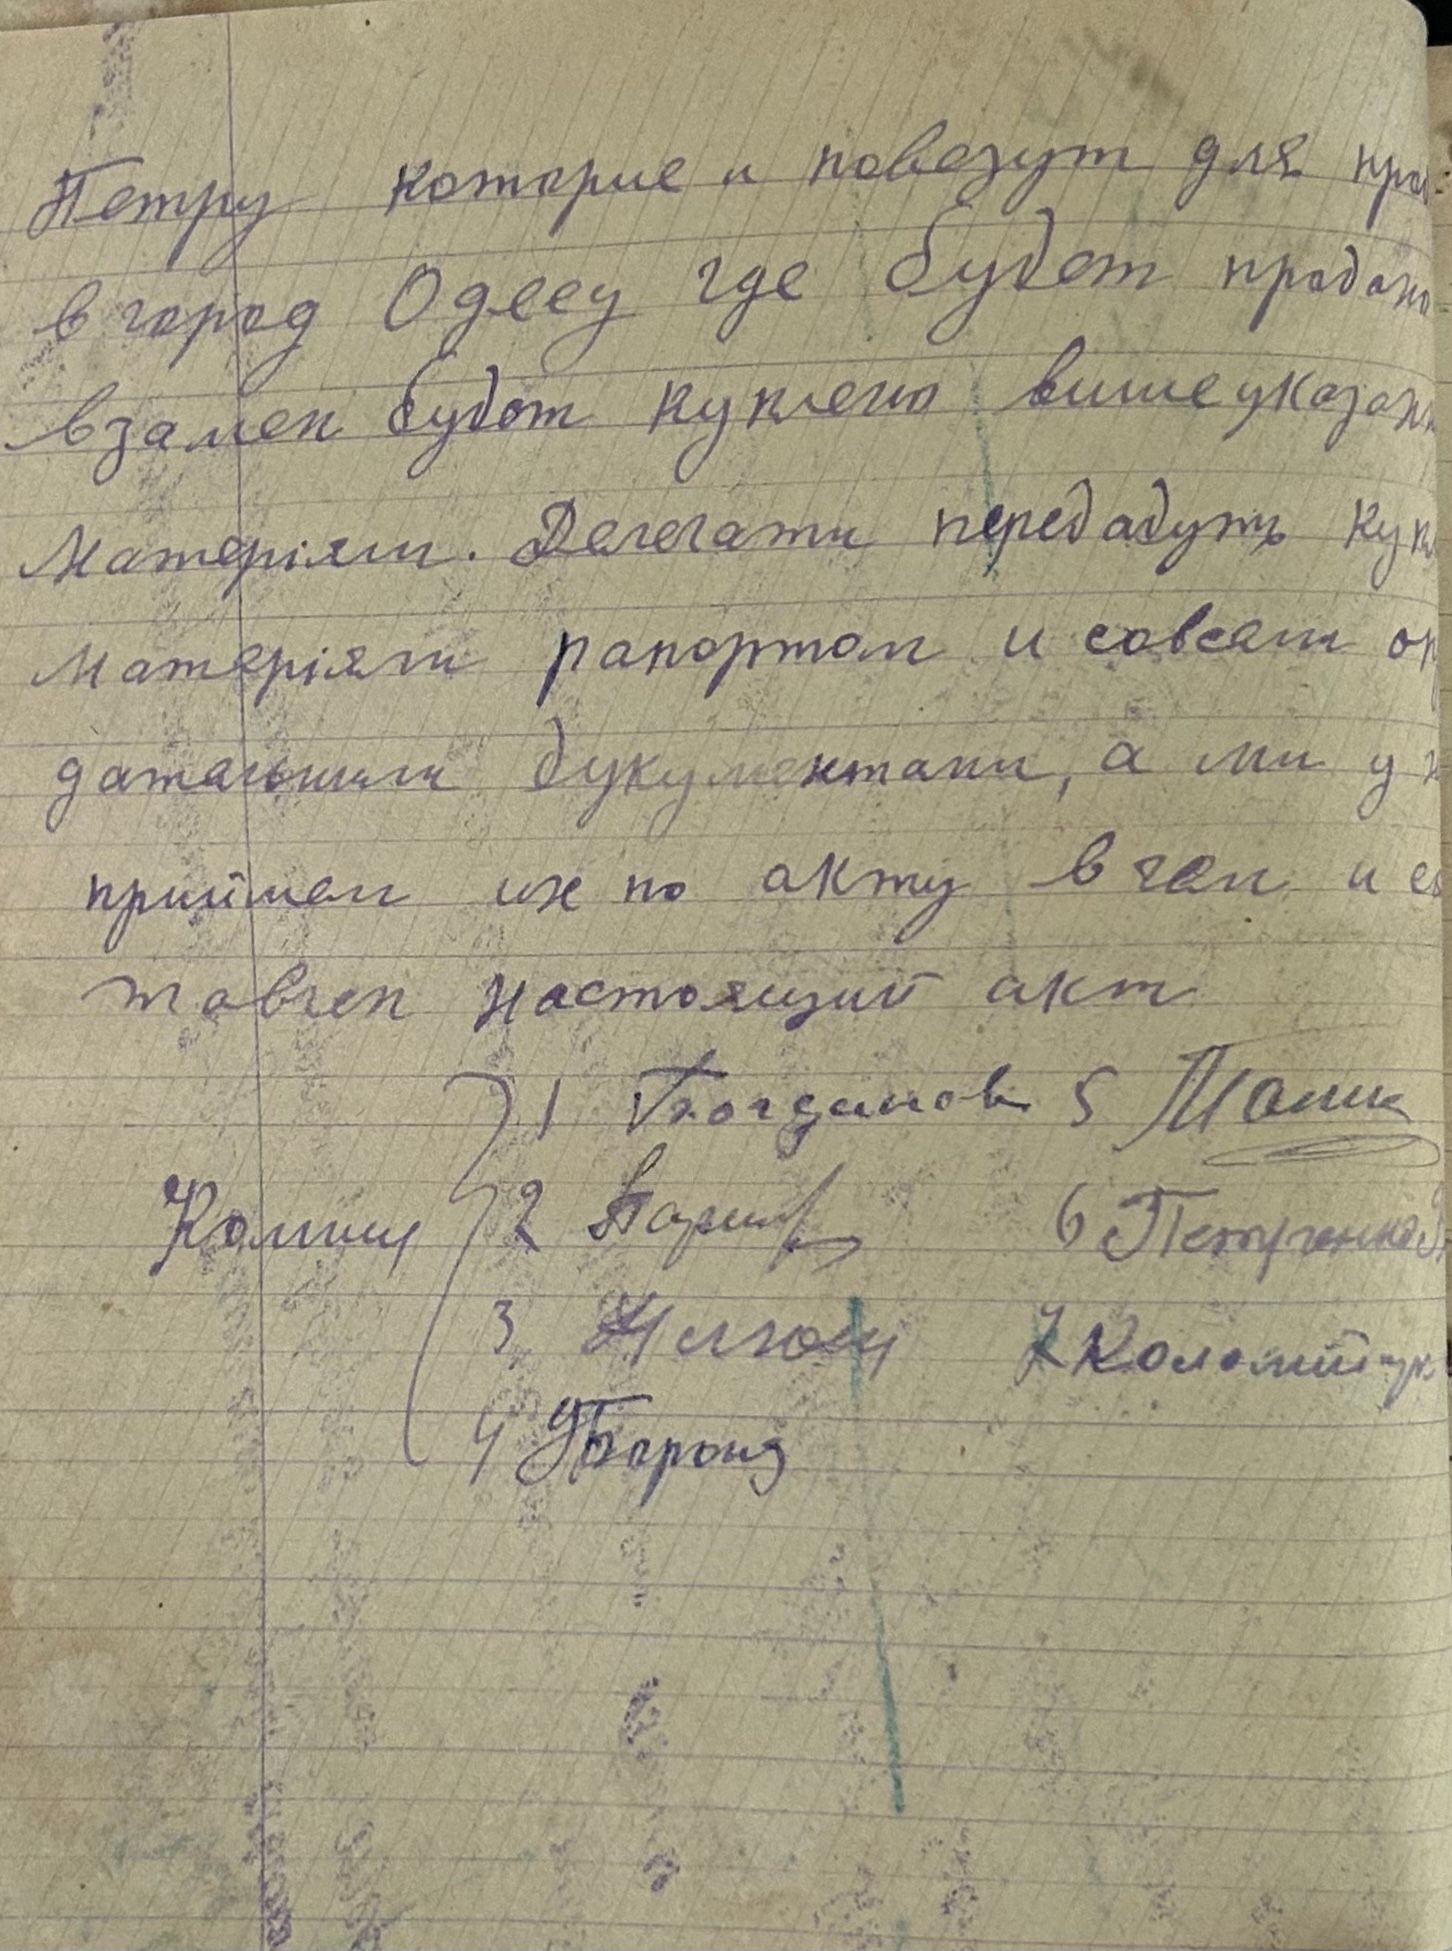 Петру которие и повезут для про
в город Одесу где будет продано
взамен будет куплено вишеуказан
Матеріяли. Делегати передадуть куп
матеріяли рапортом и совсеми оп
дательними букументами, а ми у н
приймем их по акту в чем и со
тавлен настоящий акт
1 Богданов 5 Малик
Комиси 2
3
4 Барона
6 Петриченко
7 Коломийчук